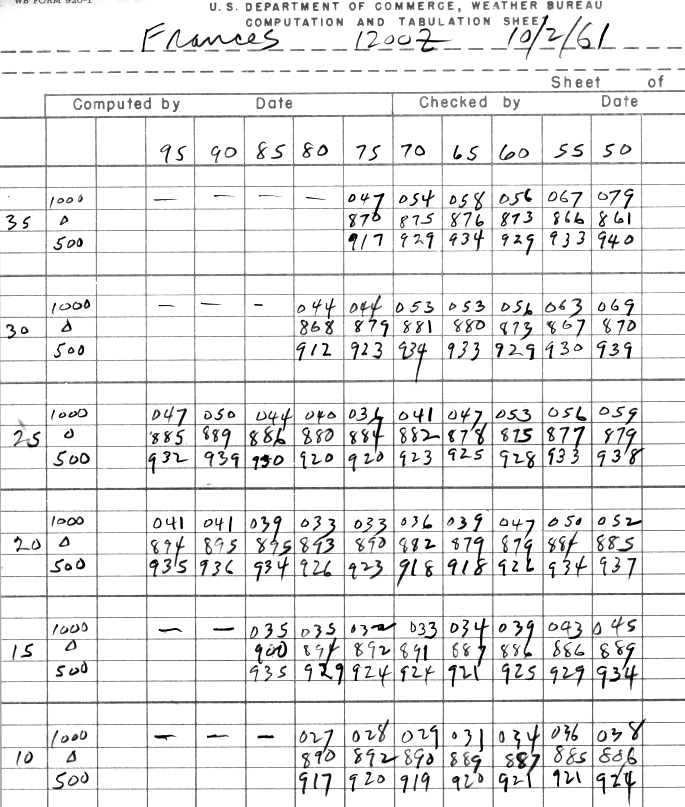 WB FORM 920-1
U.S. DEPARTMENT OF COMMERCE, WEATHER BUREAU
COMPUTATION AND TABULATION SHEET
Frances 1200Z 10/2/61
Sheet of
Computed by Date Checked by Date
95 90 85 80 75 70 65 60 55 50
1000 — — — — 047 054 058 056 067 079
35 Δ 870 875 876 873 866 861
500 917 929 934 929 933 940
1000 — — - 044 044 053 053 056 063 069
30 Δ 868 879 881 880 873 867 870
500 912 923 934 933 929 930 939
1000 047 050 044 040 036 041 047 053 056 059
25 Δ 885 889 886 880 884 882 878 875 877 879
500 932 939 930 920 920 923 925 928 933 938
1000 041 041 039 033 033 036 039 047 050 052
20 Δ 894 895 895 893 890 882 879 879 884 885
500 935 936 934 926 923 918 918 926 934 937
1000 — — 035 035 032 033 034 039 043 045
15 Δ 900 894 892 891 887 886 886 889
500 935 929 924 924 921 925 929 934
1000 — — — 027 028 029 031 034 036 038
10 Δ 890 892 890 889 887 885 886
500 917 920 919 920 921 921 924